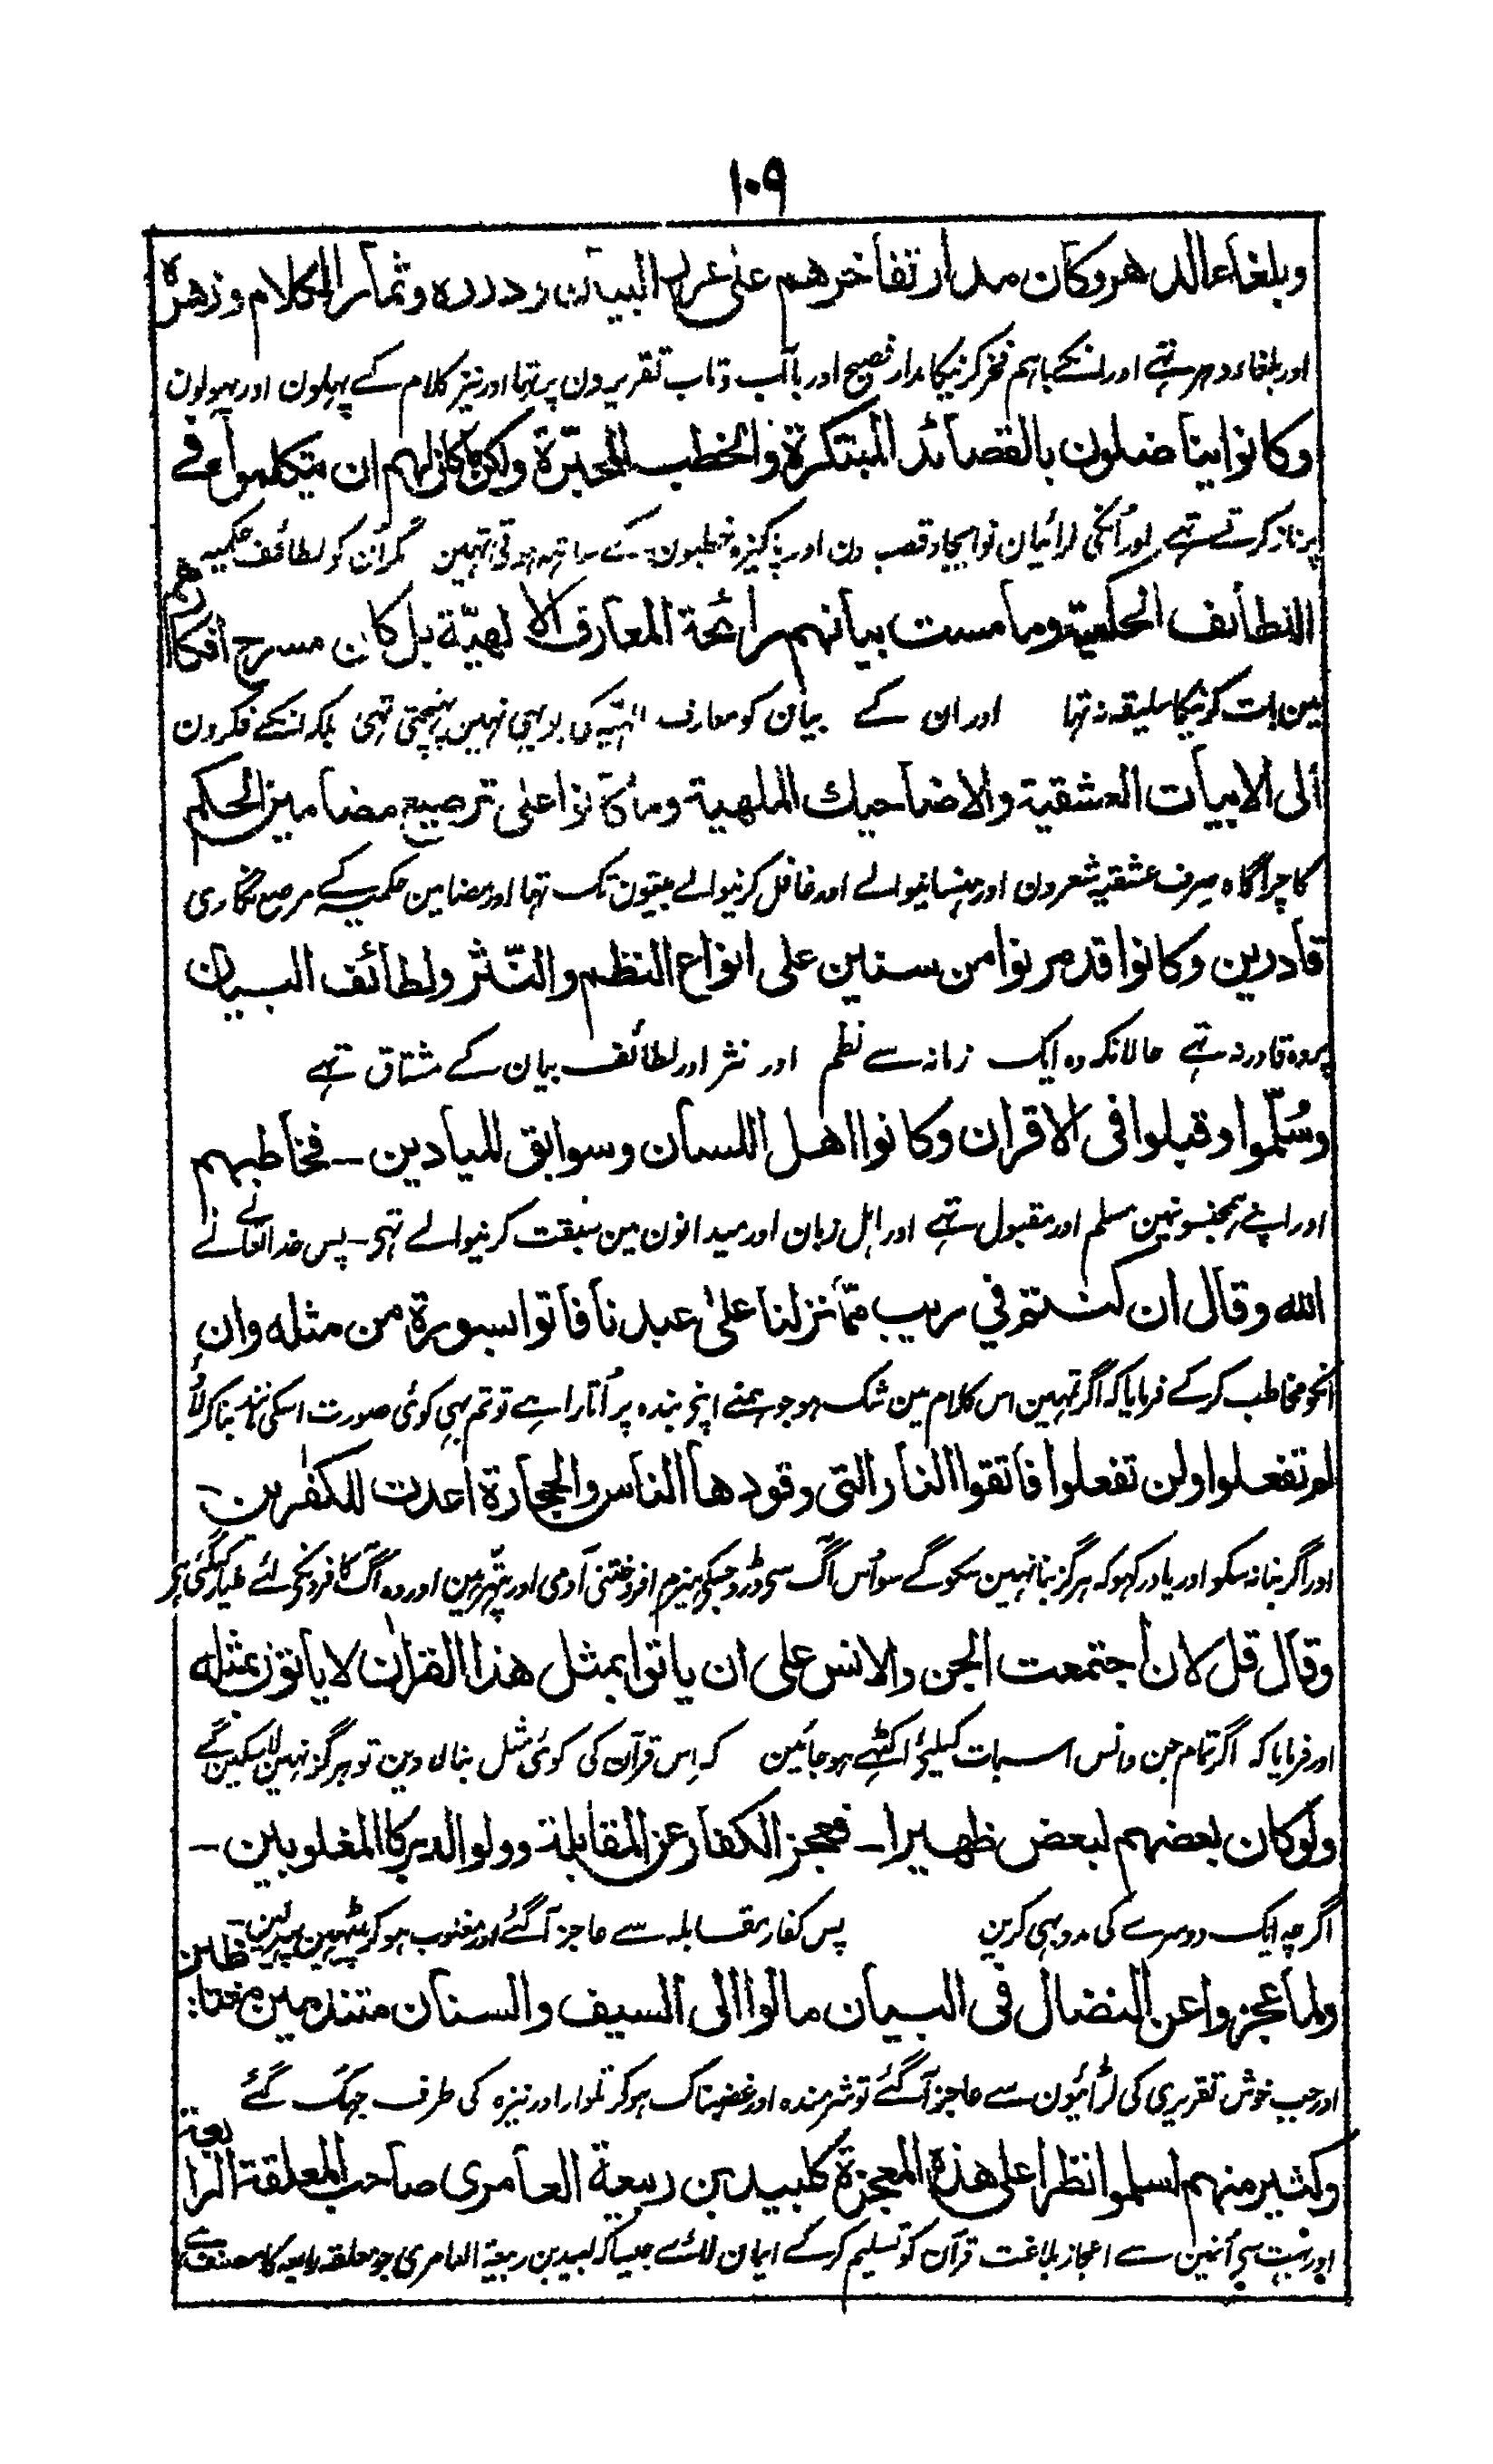 ۱۰۹
وبلغاء الدهر وكان مدار تفاخرهم على غرر البيان ودرره وثمار الكلام وزهره
اور بلغاء دہر تہے اور انکے باہم فخر کرنیکا مدار فصیح اور با آب وتاب تقریرون پر تہا اور نیز کلام کے پہلون اور پہولون
وكانوا يناضلون بالقصائد المبتكرة والخطب المحبّرة ولكن ما كان لهم ان يتكلموا في
پر ناز کرتے تہے اور اُنکی لڑائیان نو ایجاد قصیدون اور پاکیزہ خطبون کے ساتہہ ہوتی تہین مگر اُن کو لطائف حکمیہ
اللطائف الحكمية وما مست بيانهم رائحة المعارف الالهيّة بل كان مسرح افكارهم
مین بات کرنیکا سلیقہ نہ تہا اور ان کے بیان کو معارف الٰہیّہ کی بو بہی نہین پہنچتی تہی بلکہ انکے فکرون
الى الابيات العشقية والاضاحيك الملهية وما كانوا على ترصيع مضامين الحكم
کا چراگاہ صرف عشقیہ شعرون اور ہنسانیوالے اور غافل کرنیوالے بیتون تک تہا اور مضامین حکمیہ کے مرصع نگاری
قادرين وكانوا قد مرنوا من سنين على انواع النظم والنّثر ولطائف البيان
پر وہ قادر نہ تہے حالانکہ وہ ایک زمانہ سے نظم اور نثر اور لطائف بیان کے مشتاق تہے
وسُلّموا وقبلوا فى الاقران وكانوا اهل اللسان وسوابق الميادين ۔ فخاطبهم
اور اپنے ہمجنسونمین مسلم اور مقبول تہے اور اہل زبان اور میدانون مین سبقت کرنیوالے تہی۔ پس خدا تعالےٰ نے
الله وقال ان كنتم في ريب ممّا نزلنا علىٰ عبدنا فاتوا بسورة من مثله وان
انکو مخاطب کرکے فرمایا کہ اگر تمہین اس کلام مین شک ہو جو ہمنے اپنے بندہ پر اُتارا ہے تو تم بہی کوئی صورت اسکی مانند بنا کر لاؤ
لم تفعلوا ولن تفعلوا فاتقوا النار التى وقودها الناس والحجارة اعدت للكفٰرين۔
اور اگر بنا نہ سکو اور یاد رکہو کہ ہرگز بنا نہین سکو گے سو اُس آگ سی ڈرو جسکی ہیزم افروختنی آدمی اور پتّہر ہین اور وہ آگ کافرونکی لئے طیار کیگئی ہے
وقال قل لان اجتمعت الجن والانس على ان ياتوا بمثل هذا القراٰن لا ياتون بمثله
اور فرمایا کہ اگر تمام جن وانس اسبات کیلئے اکٹہے ہوجائین کہ اِس قرآن کی کوئی مثل بنا لاوین تو ہرگز نہین لاسکین گے
ولو كان بعضهم لبعض ظهيرا۔ فعجز الكفار عن المقابلة وولوا الدبر كالمغلوبين۔
اگرچہ ایک دوسرے کی مدد بہی کرین پس کفار مقابلہ سے عاجز آگئے اور مغلوب ہوکر پیٹہین پہیر لین۔
ولما عجزوا عن النضال فى البيان مالوا الى السيف والسنان متندمين مغتاظين
اور جب خوش تقریری کی لڑائیون سے عاجز آگئے تو شرمندہ اور غضبناک ہوکر تلوار اور نیزہ کی طرف جہک گئے
وكثير منهم اسلموا نظرا على هذه المعجزة كلبيد بن ربيعة العامرى صاحب المعلقة الرابعة
اور بہت سے اُنمین سے اعجاز بلاغت قرآن کو تسلیم کرکے ایمان لائے جیسا کہ لبید بن ربیعۃ العامری جو معلقہ رابعہ کا مصنف ہے